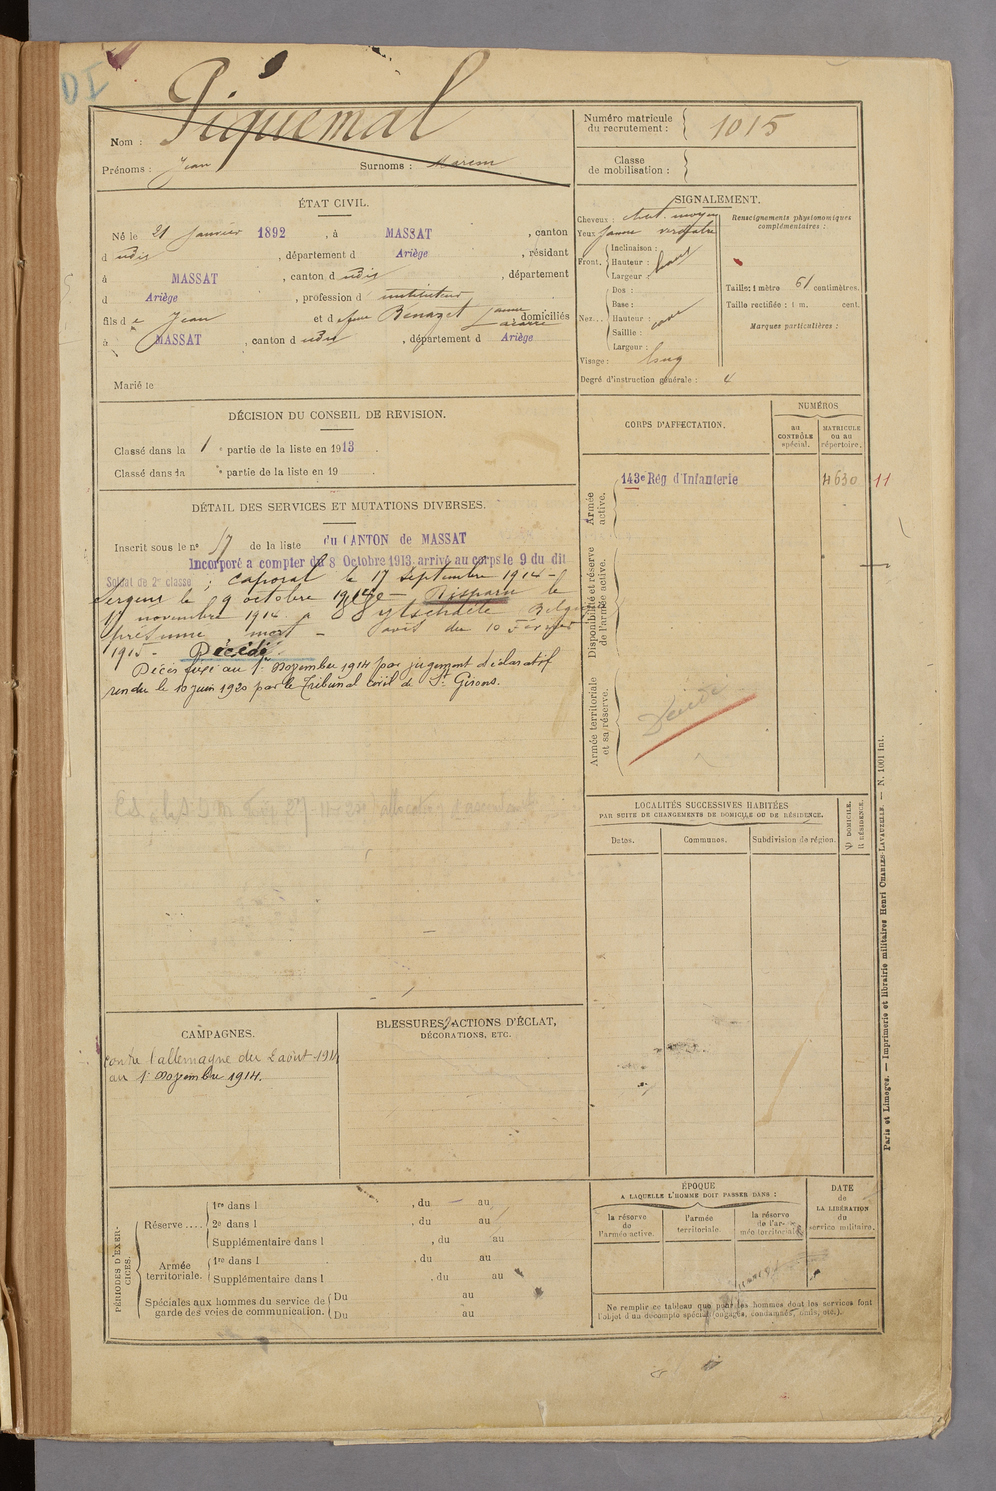 Piquemal
Nom :
Prénoms : Jean Surnoms :
Numéro matricule
du recrutement : 1015
Classe
de mobilisation :
ÉTAT CIVIL.
Né le 21 Janvier 1892, à MASSAT, canton
d udis, département d Ariège, résidant
à MASSAT, canton d udis, département
d Ariège, profession d instituteur
fils de Jean et de feue Bénazet Jeanne domiciliés
à MASSAT, canton d udis, département d Ariège
Marié le
SIGNALEMENT.
Cheveux : chat. moyen
Yeux jaune verdâtre
Front. Inclinaison :
Hauteur :
Largeur :
Nez... Dos :
Base :
Hauteur :
Saillie :
Largeur :
Visage : long
Degré d'instruction générale : 4
Renseignements physionomiques
complémentaires :
Taille: 1 mètre 61 centimètres.
Taille rectifiée : 1 m. cent.
Marques particulières :
DÉCISION DU CONSEIL DE REVISION.
Classé dans la 1e partie de la liste en 1913.
Classé dans la e partie de la liste en 19 .
DÉTAIL DES SERVICES ET MUTATIONS DIVERSES.
Inscrit sous le no 17 de la liste du CANTON de MASSAT
Incorporé à compter du 8 Octobre 1913, arrivé au corps le 9 du dit
Soldat de 2e classe ; Caporal le 17 Septembre 1914 -
Sergent le 9 octobre 1914 - Disparu le
11 novembre 1914 à Wytschaete Belgique
présumé mort - avis du 10 Février
1915 - Décédé
Décès fixé au 1er Novembre 1914 par jugement déclaratif
rendu le 10 juin 1920 par le Tribunal civil de St Girons.
CORPS D'AFFECTATION.
NUMÉROS
au
CONTRÔLE
spécial.
MATRICULE
ou au
répertoire.
Armée
active.
143e Rég d'Infanterie 4630 11
Disponibilité et réserve
de l'armée active.
Armée territoriale
et sa réserve.
LOCALITÉS SUCCESSIVES HABITÉES
PAR SUITE DE CHANGEMENTS DE DOMICILE OU DE RÉSIDENCE.
Dates.
Communes.
Subdivision de région.
D DOMICILE.
R RÉSIDENCE.
CAMPAGNES.
Contre l'allemagne du 2 août 1914
au 1er Novembre 1914.
BLESSURES, ACTIONS D'ÉCLAT,
DÉCORATIONS, ETC.
PÉRIODES D'EXER-
CICES.
Réserve....
1re dans l , du au
2e dans l , du au
Supplémentaire dans l , du au
Armée
territoriale.
1re dans l , du au
Supplémentaire dans l , du au
Spéciales aux hommes du service de
garde des voies de communication.
Du au
Du au
ÉPOQUE
A LAQUELLE L'HOMME DOIT PASSER DANS :
la réserve
de
l'armée active.
l'armée
territoriale.
la réserve
de l'ar-
mée territoriale
DATE
de
LA LIBÉRATION
du
service militaire.
Ne remplir ce tableau que pour les hommes dont les services font
l'objet d'un décompte spécial (engagés, condamnés, omis, etc.).
Paris et Limoges. — Imprimerie et librairie militaires Henri CHARLES-LAVAUZELLE. — N. 1001 int.